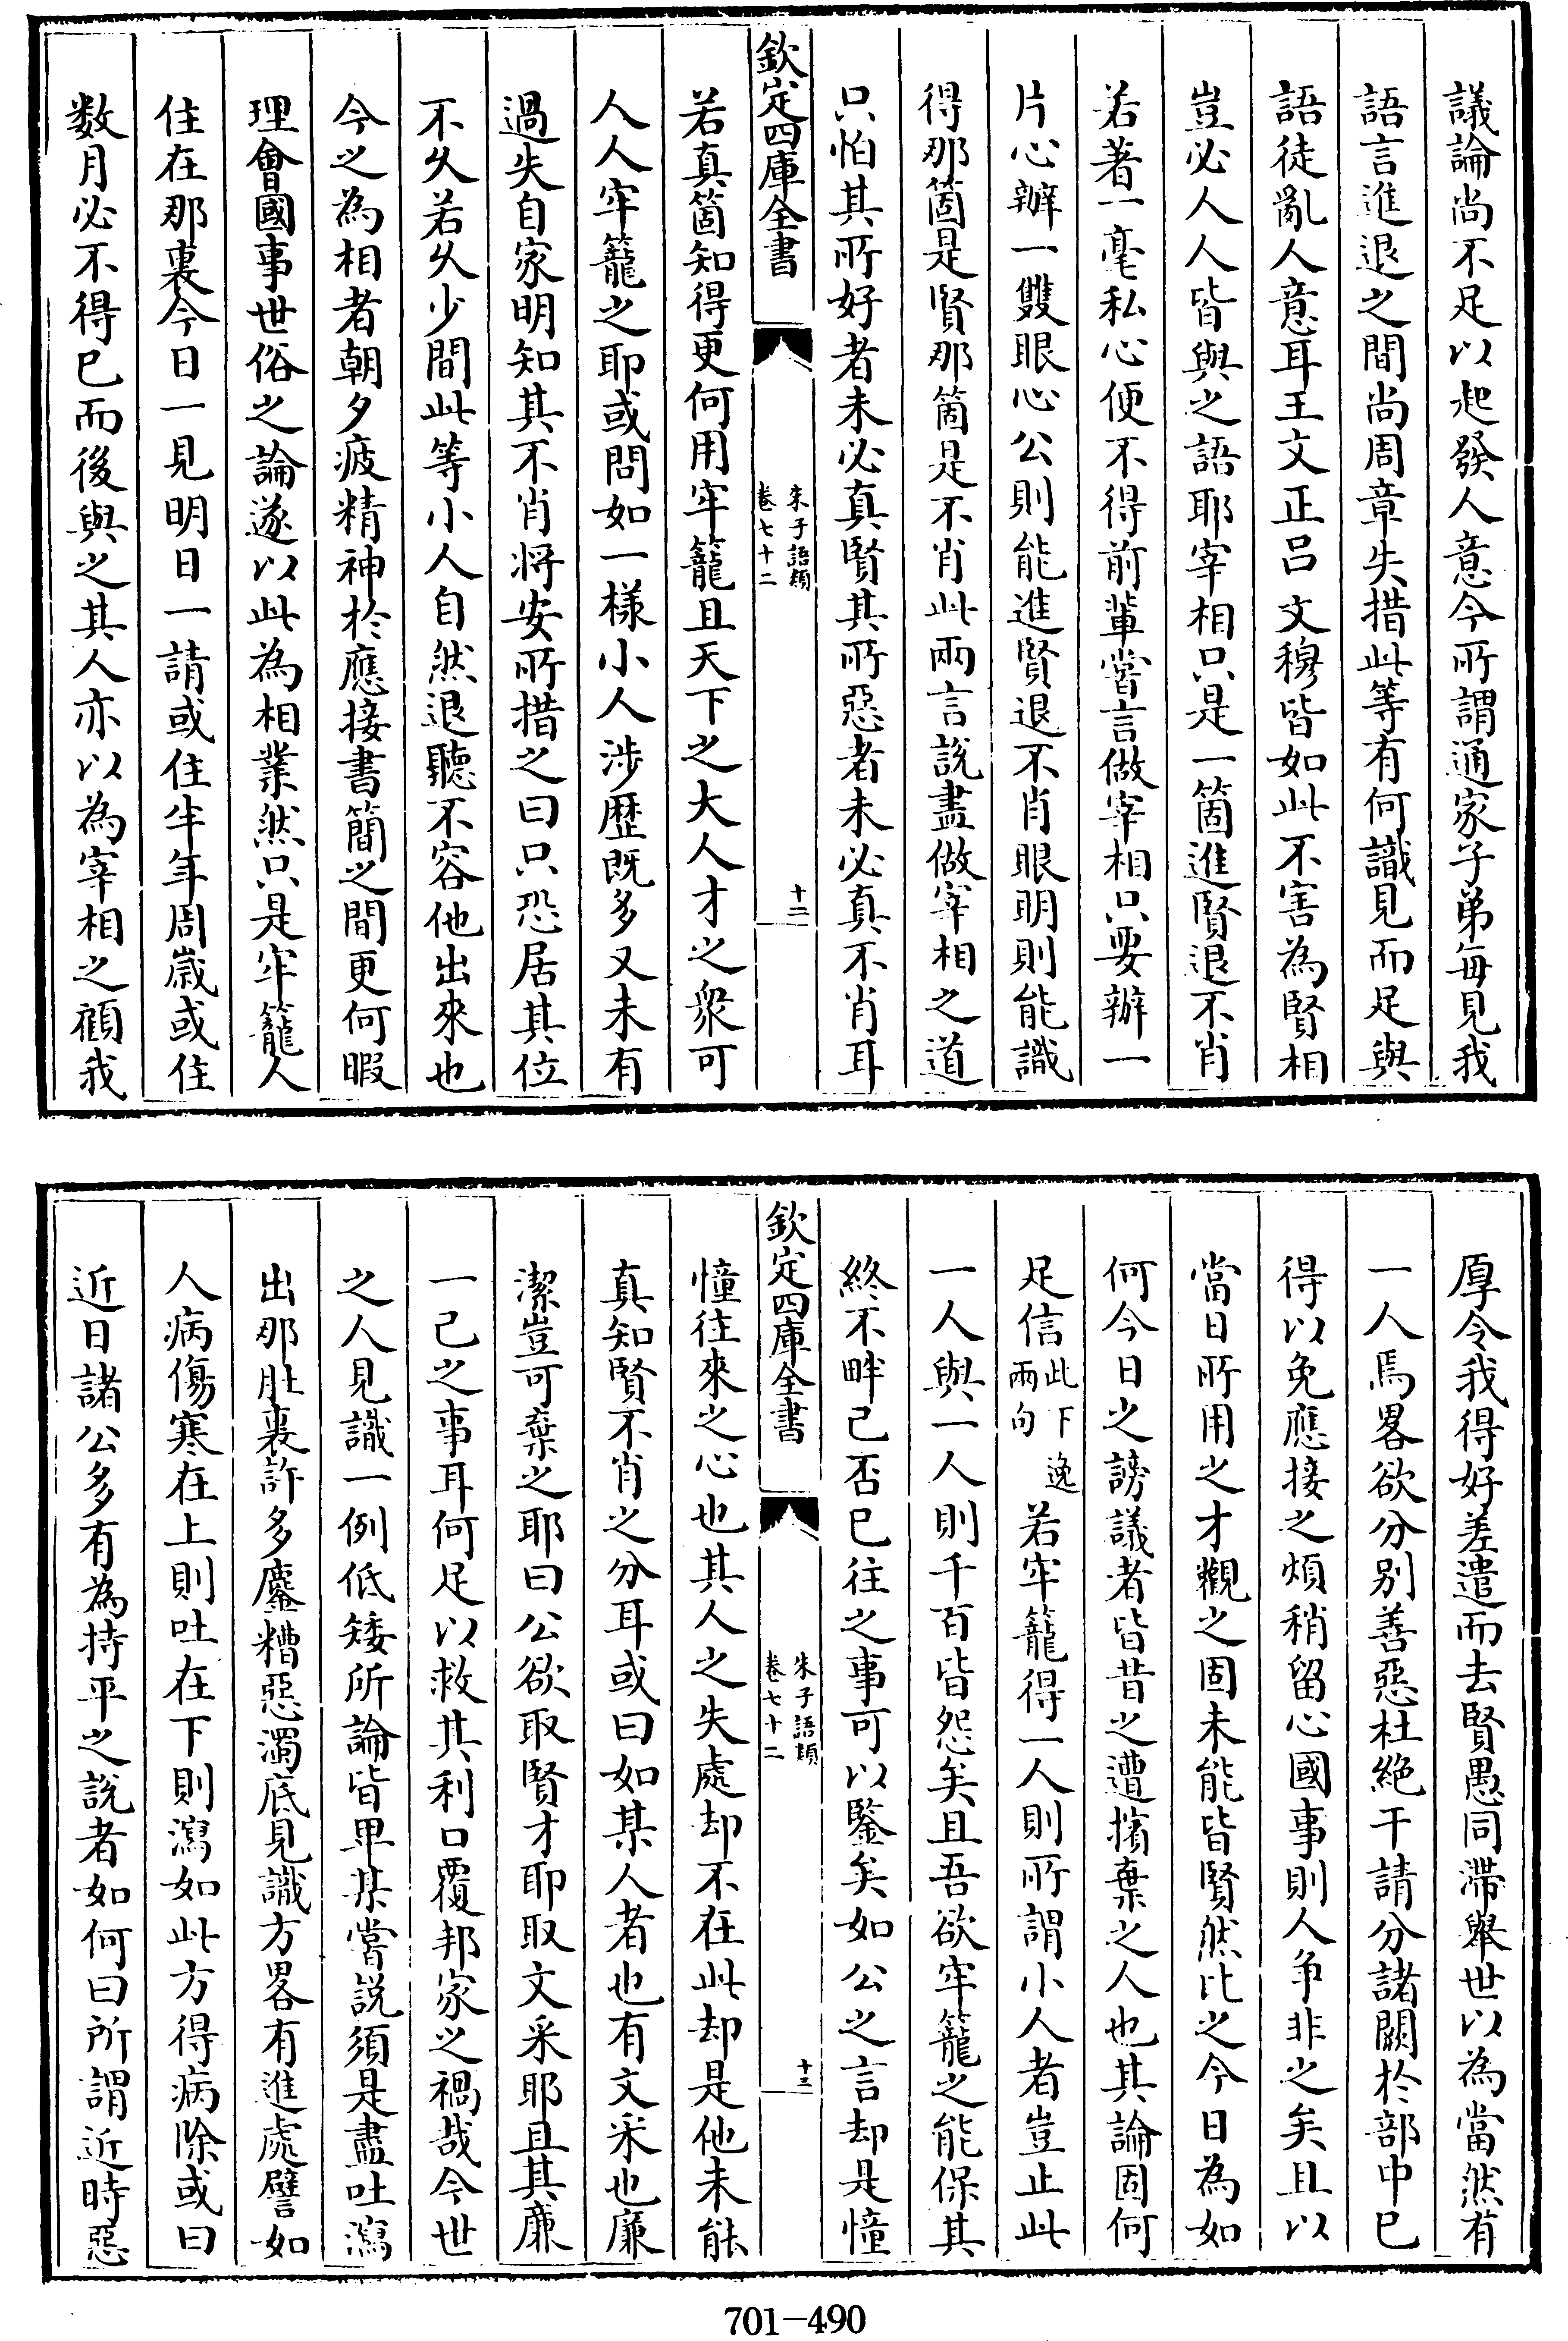 議論尚不足以起發人意今所謂通家子弟每見我
語言進退之間尚周章失措此等有何識見而足與
語徒亂人意耳王文正呂文穆皆如此不害為賢相
豈必人人皆與之語耶宰相只是一箇進賢退不肖
若著一毫私心便不得前輩嘗言做宰相只要辦一
片心辦一雙眼心公則能進賢退不肖眼明則能識
得那箇是賢那箇是不肖此兩言說盡做宰相之道
只怕其所好者未必真賢其所惡者未必真不肖耳
欽定四庫全書
朱子語類
卷七十二
十二
若真箇知得更何用牢籠且天下之大人才之衆可
人人牢籠之耶或問如一樣小人涉歷既多又未有
過失自家明知其不肖將安所措之曰只恐居其位
不久若久少間此等小人自然退聽不容他出來也
今之為相者朝夕疲精神於應接書簡之間更何暇
理會國事世俗之論遂以此為相業然只是牢籠人
住在那裏今日一見明日一請或住半年周歲或住
数月必不得已而後與之其人亦以為宰相之顧我
厚令我得好差遣而去賢愚同滯舉世以為當然有
一人焉畧欲分别善惡杜絕干請分諸闕於部中已
得以免應接之煩稍留心國事則人爭非之矣且以
當日所用之才觀之固未能皆賢然比之今日為如
何今日之謗議者皆昔之遭擯棄之人也其論固何
足信此下逸兩句若牢籠得一人則所謂小人者豈止此
一人與一人則千百皆怨矣且吾欲牢籠之能保其
終不畔已否已往之事可以鑒矣如公之言却是憧
欽定四庫全書
朱子語類
卷七十二
十三
憧往來之心也其人之失處却不在此却是他未能
真知賢不肖之分耳或曰如某人者也有文采也廉
潔豈可棄之耶曰公欲取賢才耶取文采耶且其廉
一己之事耳何足以救其利口覆邦家之禍哉今世
之人見識一例低矮所論皆卑某嘗說須是盡吐瀉
出那肚裏許多鏖糟惡濁底見識方畧有進處譬如
人病傷寒在上則吐在下則瀉如此方得病除或曰
近日諸公多有為持平之說者如何曰所謂近時惡
701-490